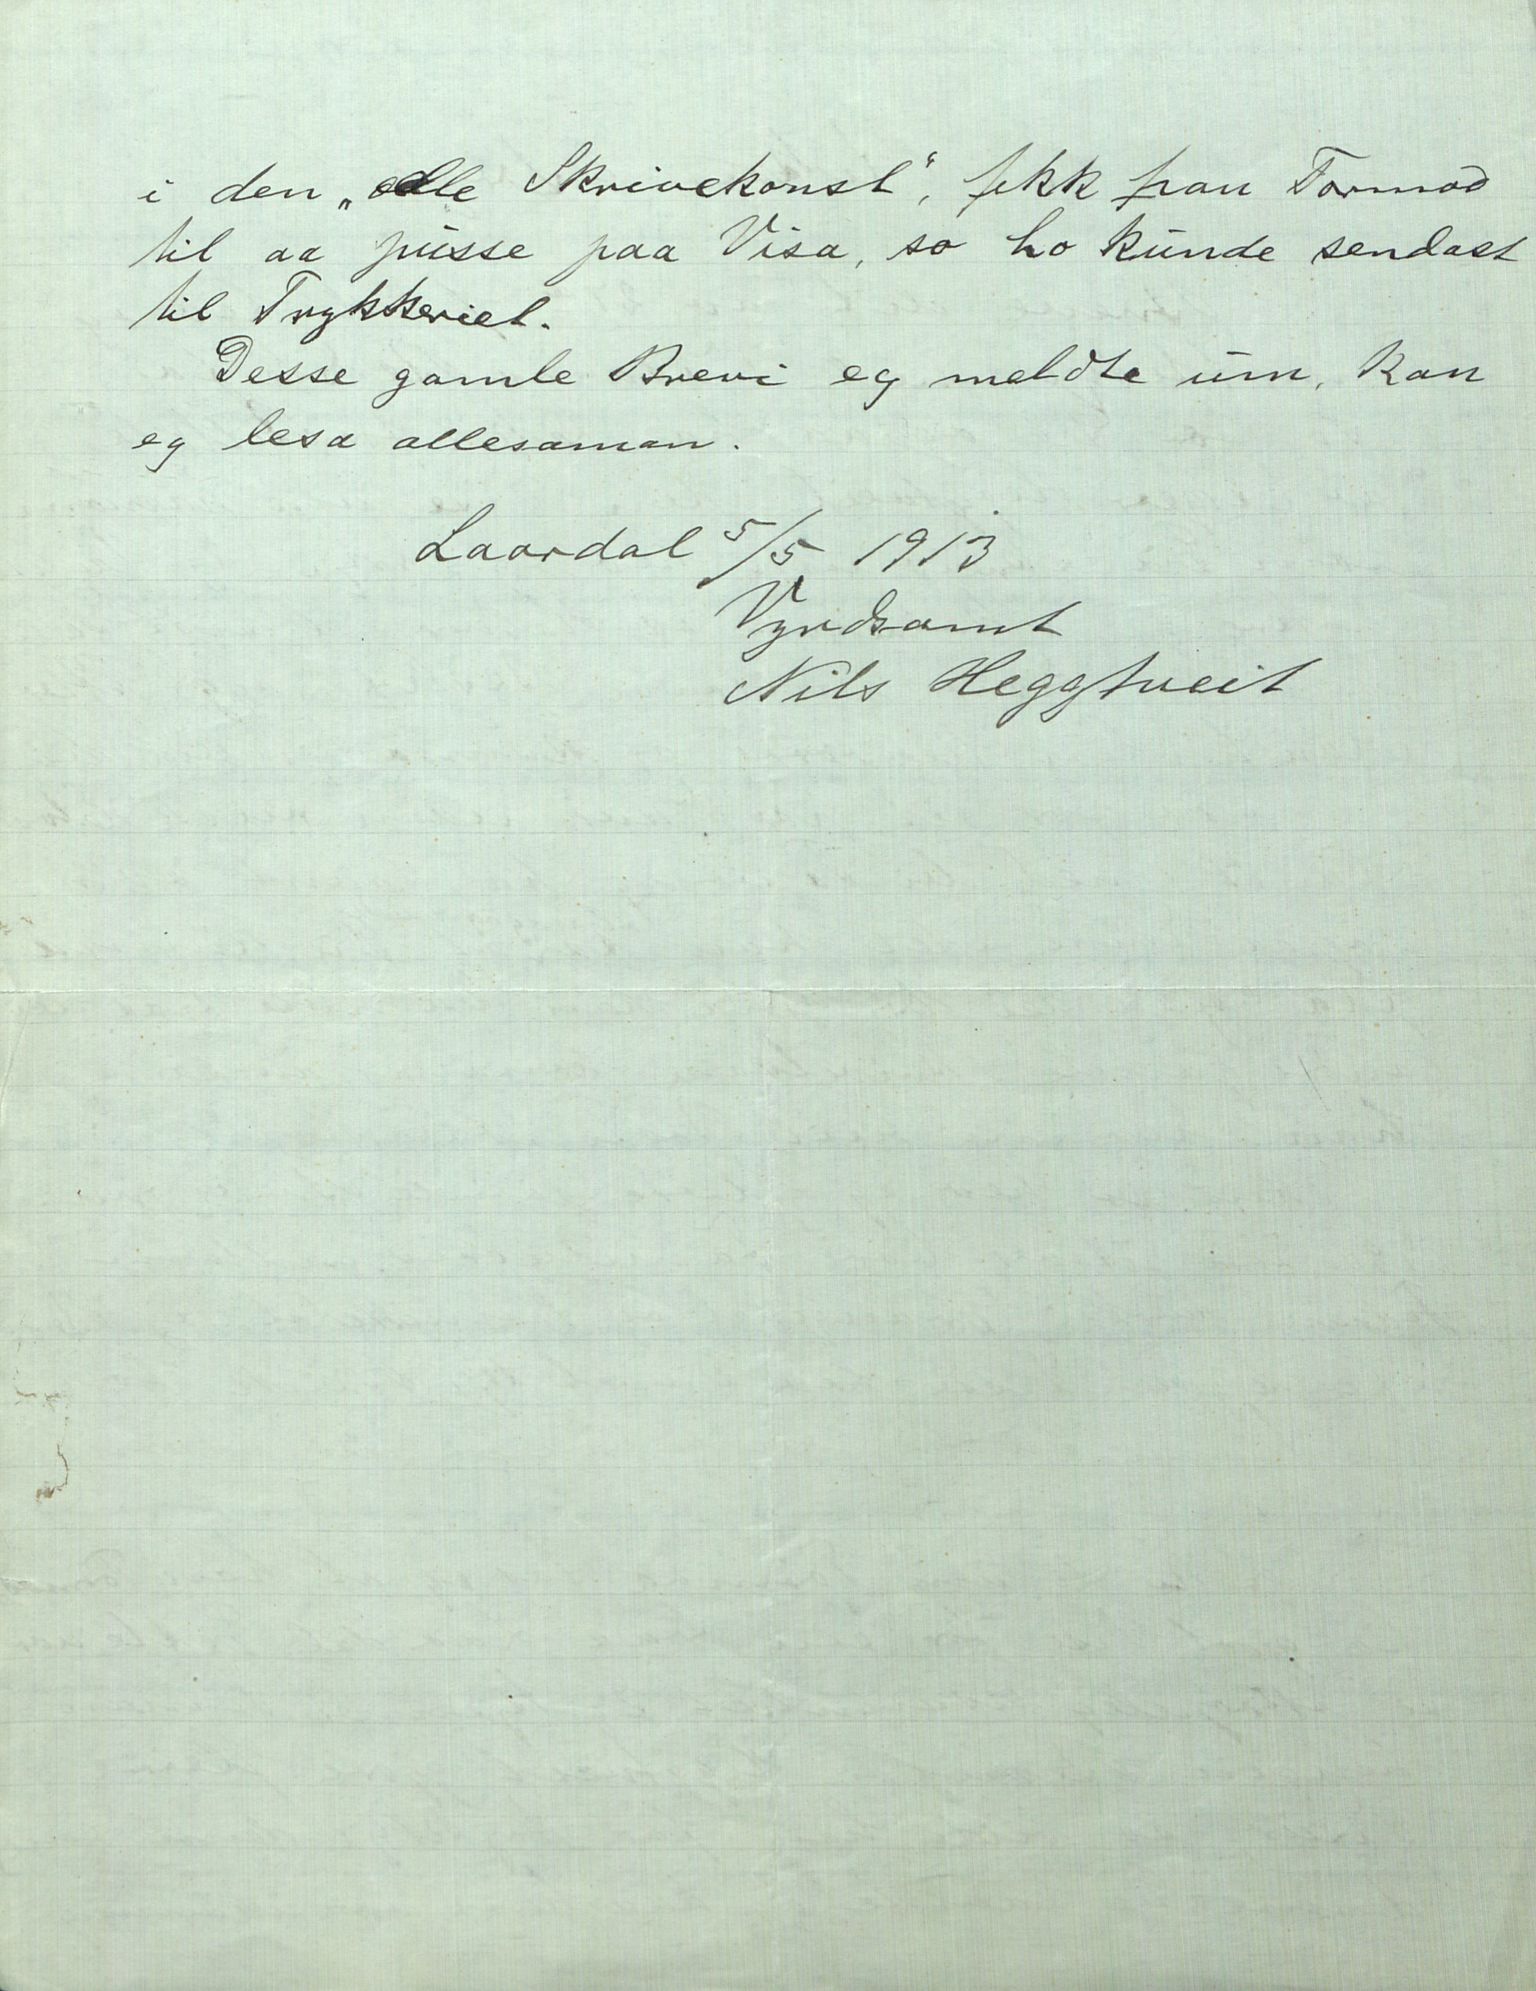 i den „edle Skrivekonst“, fekk han Tormod
til aa pússe paa Visa, so ho kúnde sendast
til Trykkeriet.
Desse gamle Brevi eg meldte úm, kan
eg lesa allesaman.
Laardal 5/5 1913
Vyrdsamt
Nils Heggtveit